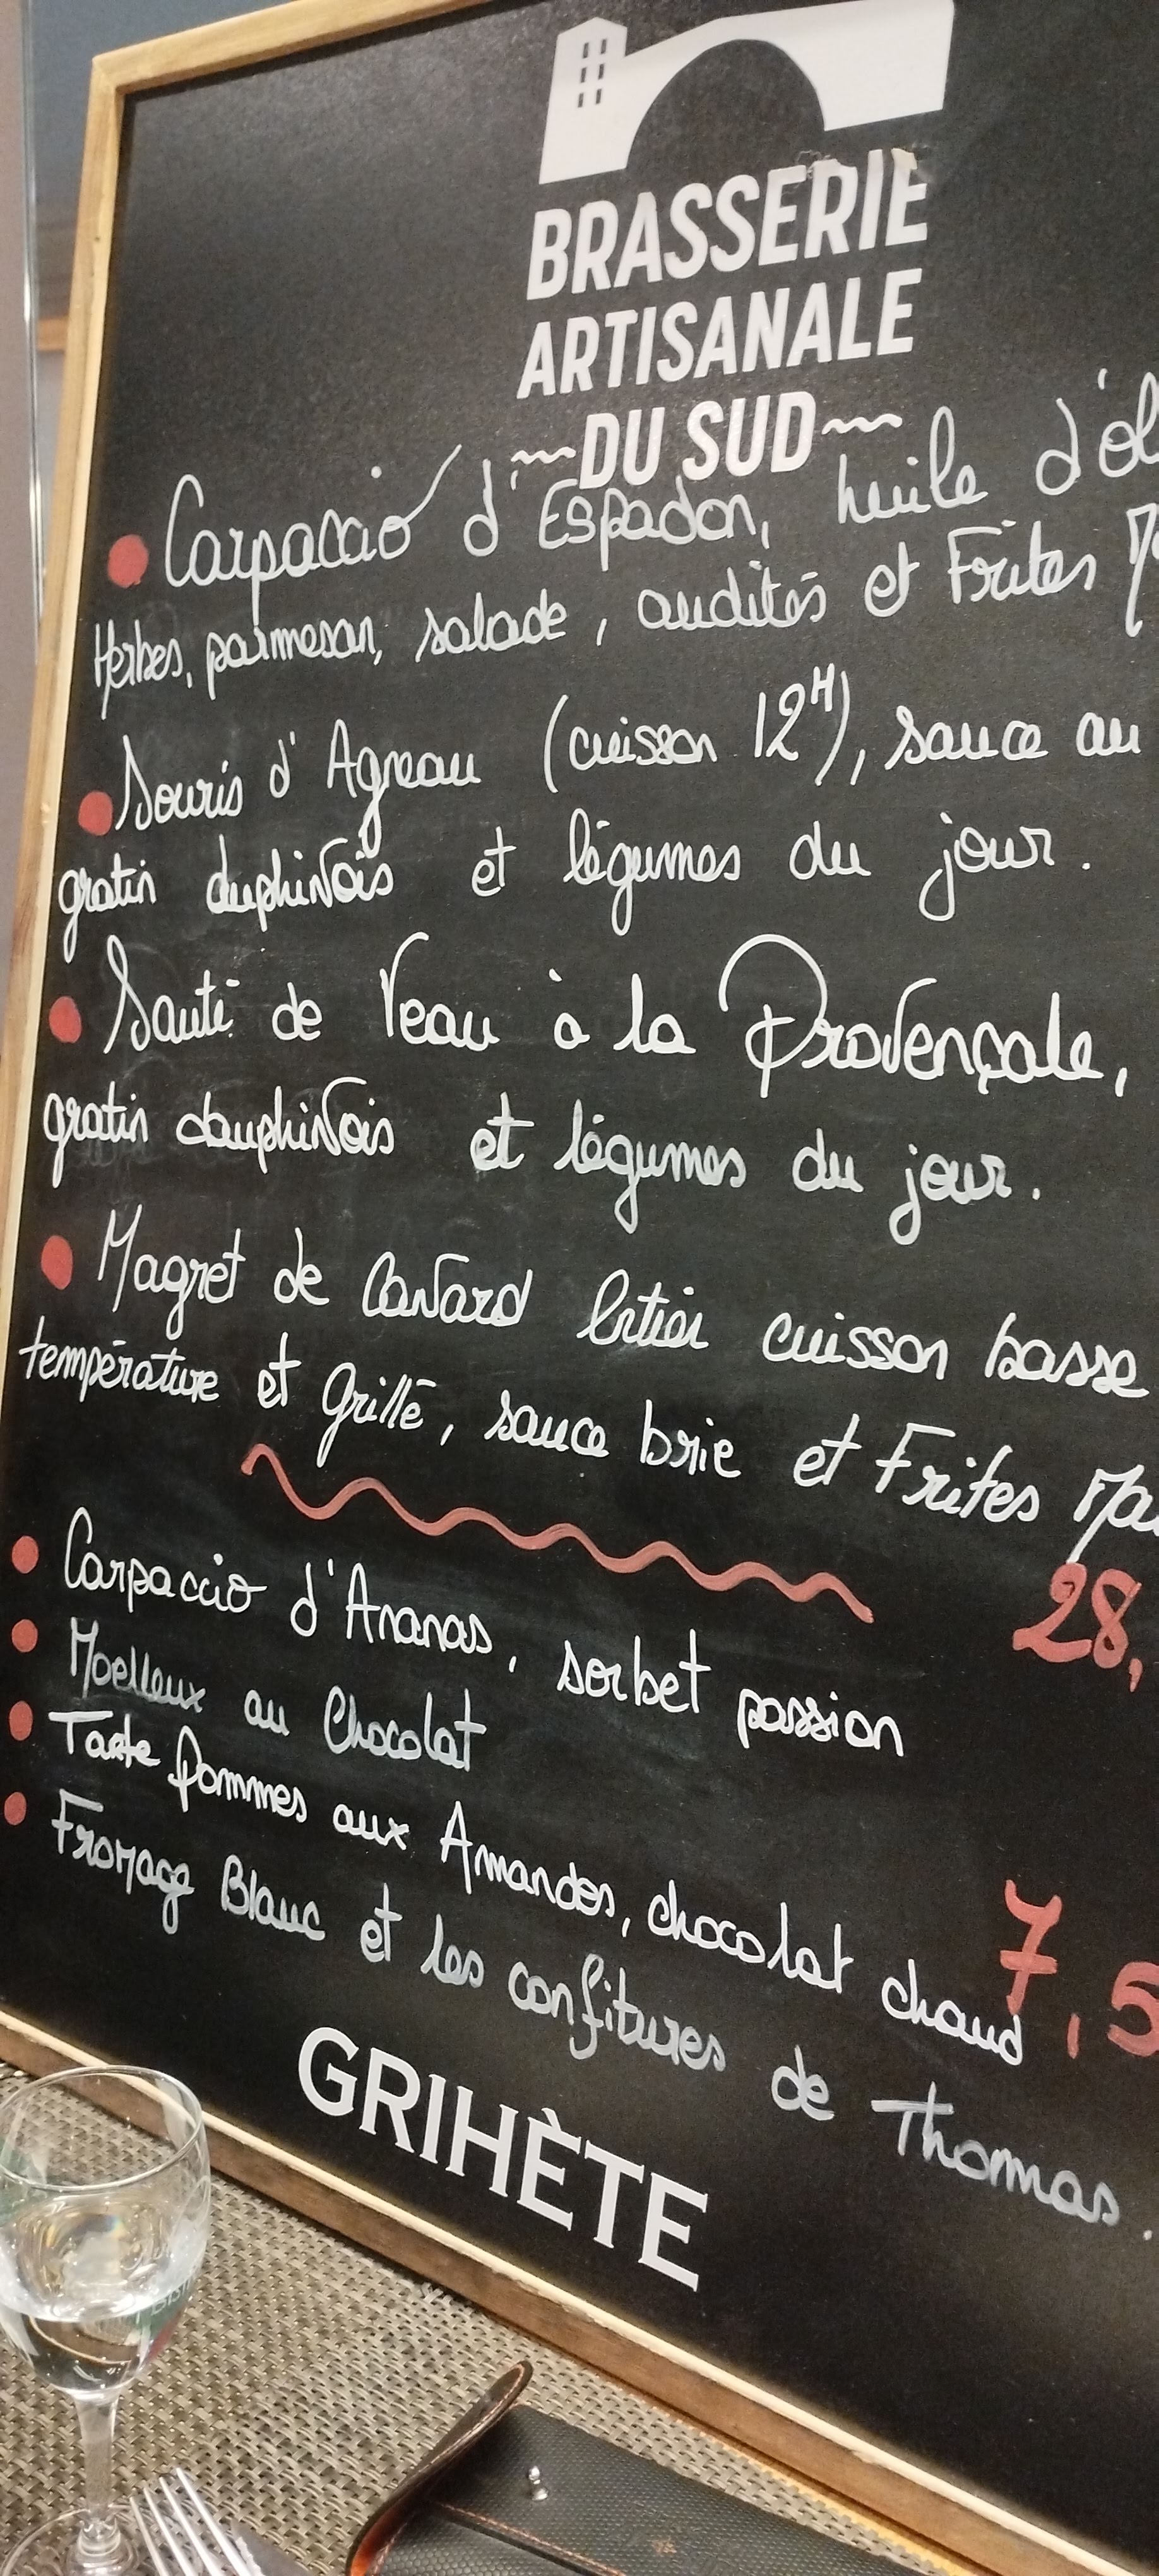 BRASSERIE
ARTISANALE
~DU SUD~
• Carpaccio d'Espadon, huile d'ol
Herbes, parmesan, salade, crudités et Frites Ma
• Souris d'Agneau (cuisson 12H), sauce au
gratin dauphinois et légumes du jour.
• Sauté de Veau à la Provençale,
gratin dauphinois et légumes du jour.
• Magret de Canard Entier cuisson basse
température et Grillé, sauce brie et Frites Mai
28,
• Carpaccio d'Ananas, sorbet passion
• Moelleux au Chocolat
• Tarte Pommes aux Amandes, chocolat chaud
7,5
• Fromage Blanc et les confitures de Thomas.
GRIHÈTE